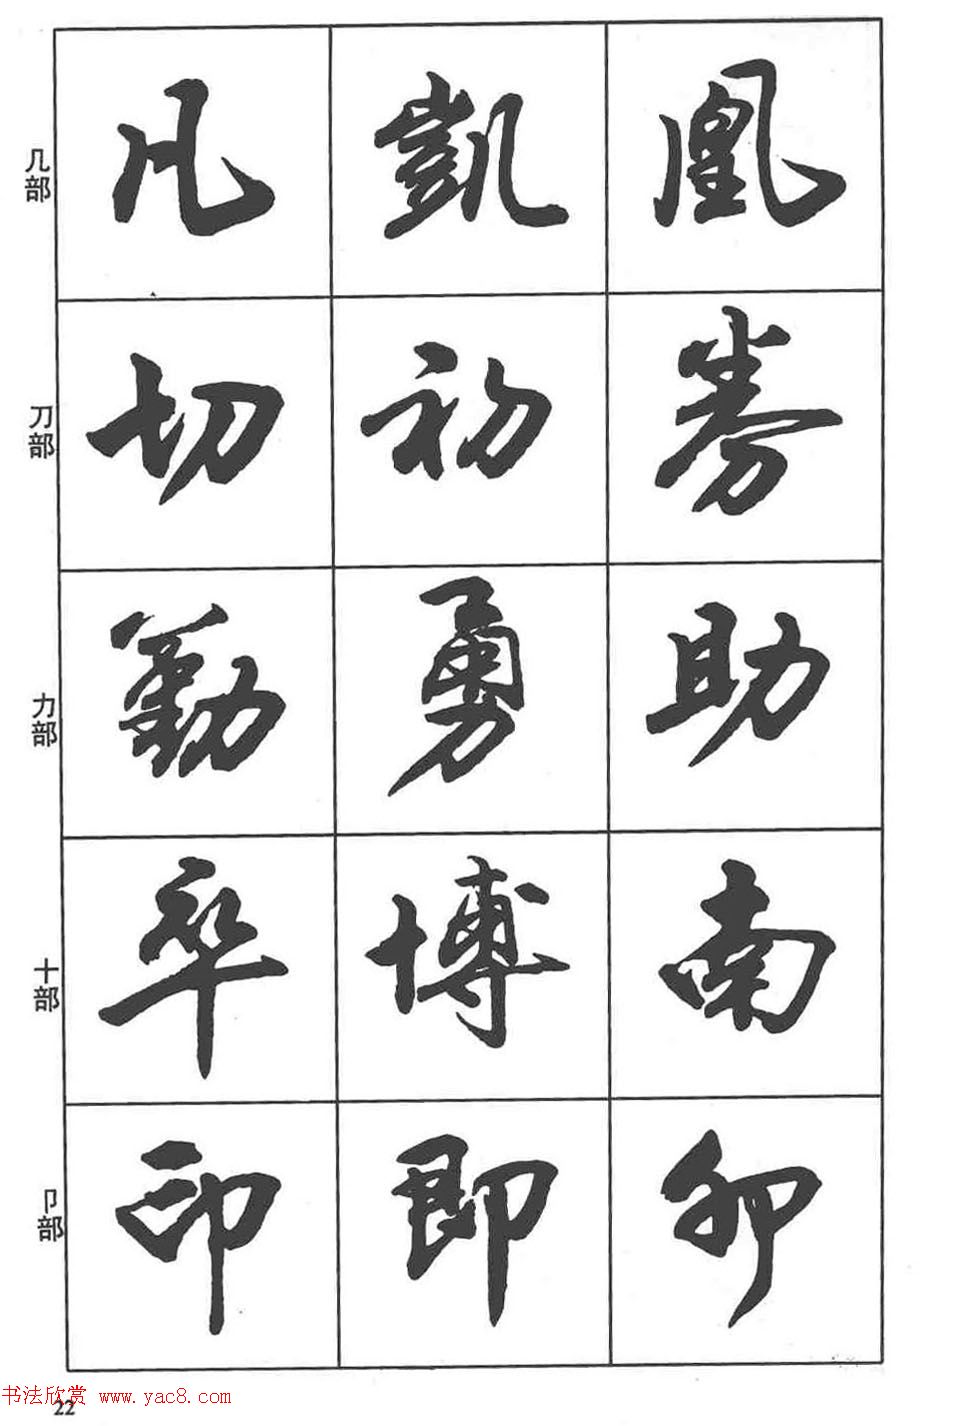 几部 凡 凱 凰
刀部 切 初 券
力部 勤 勇 助
十部 卒 博 南
卩部 印 即 卯
书法欣赏 www.yac8.com
22